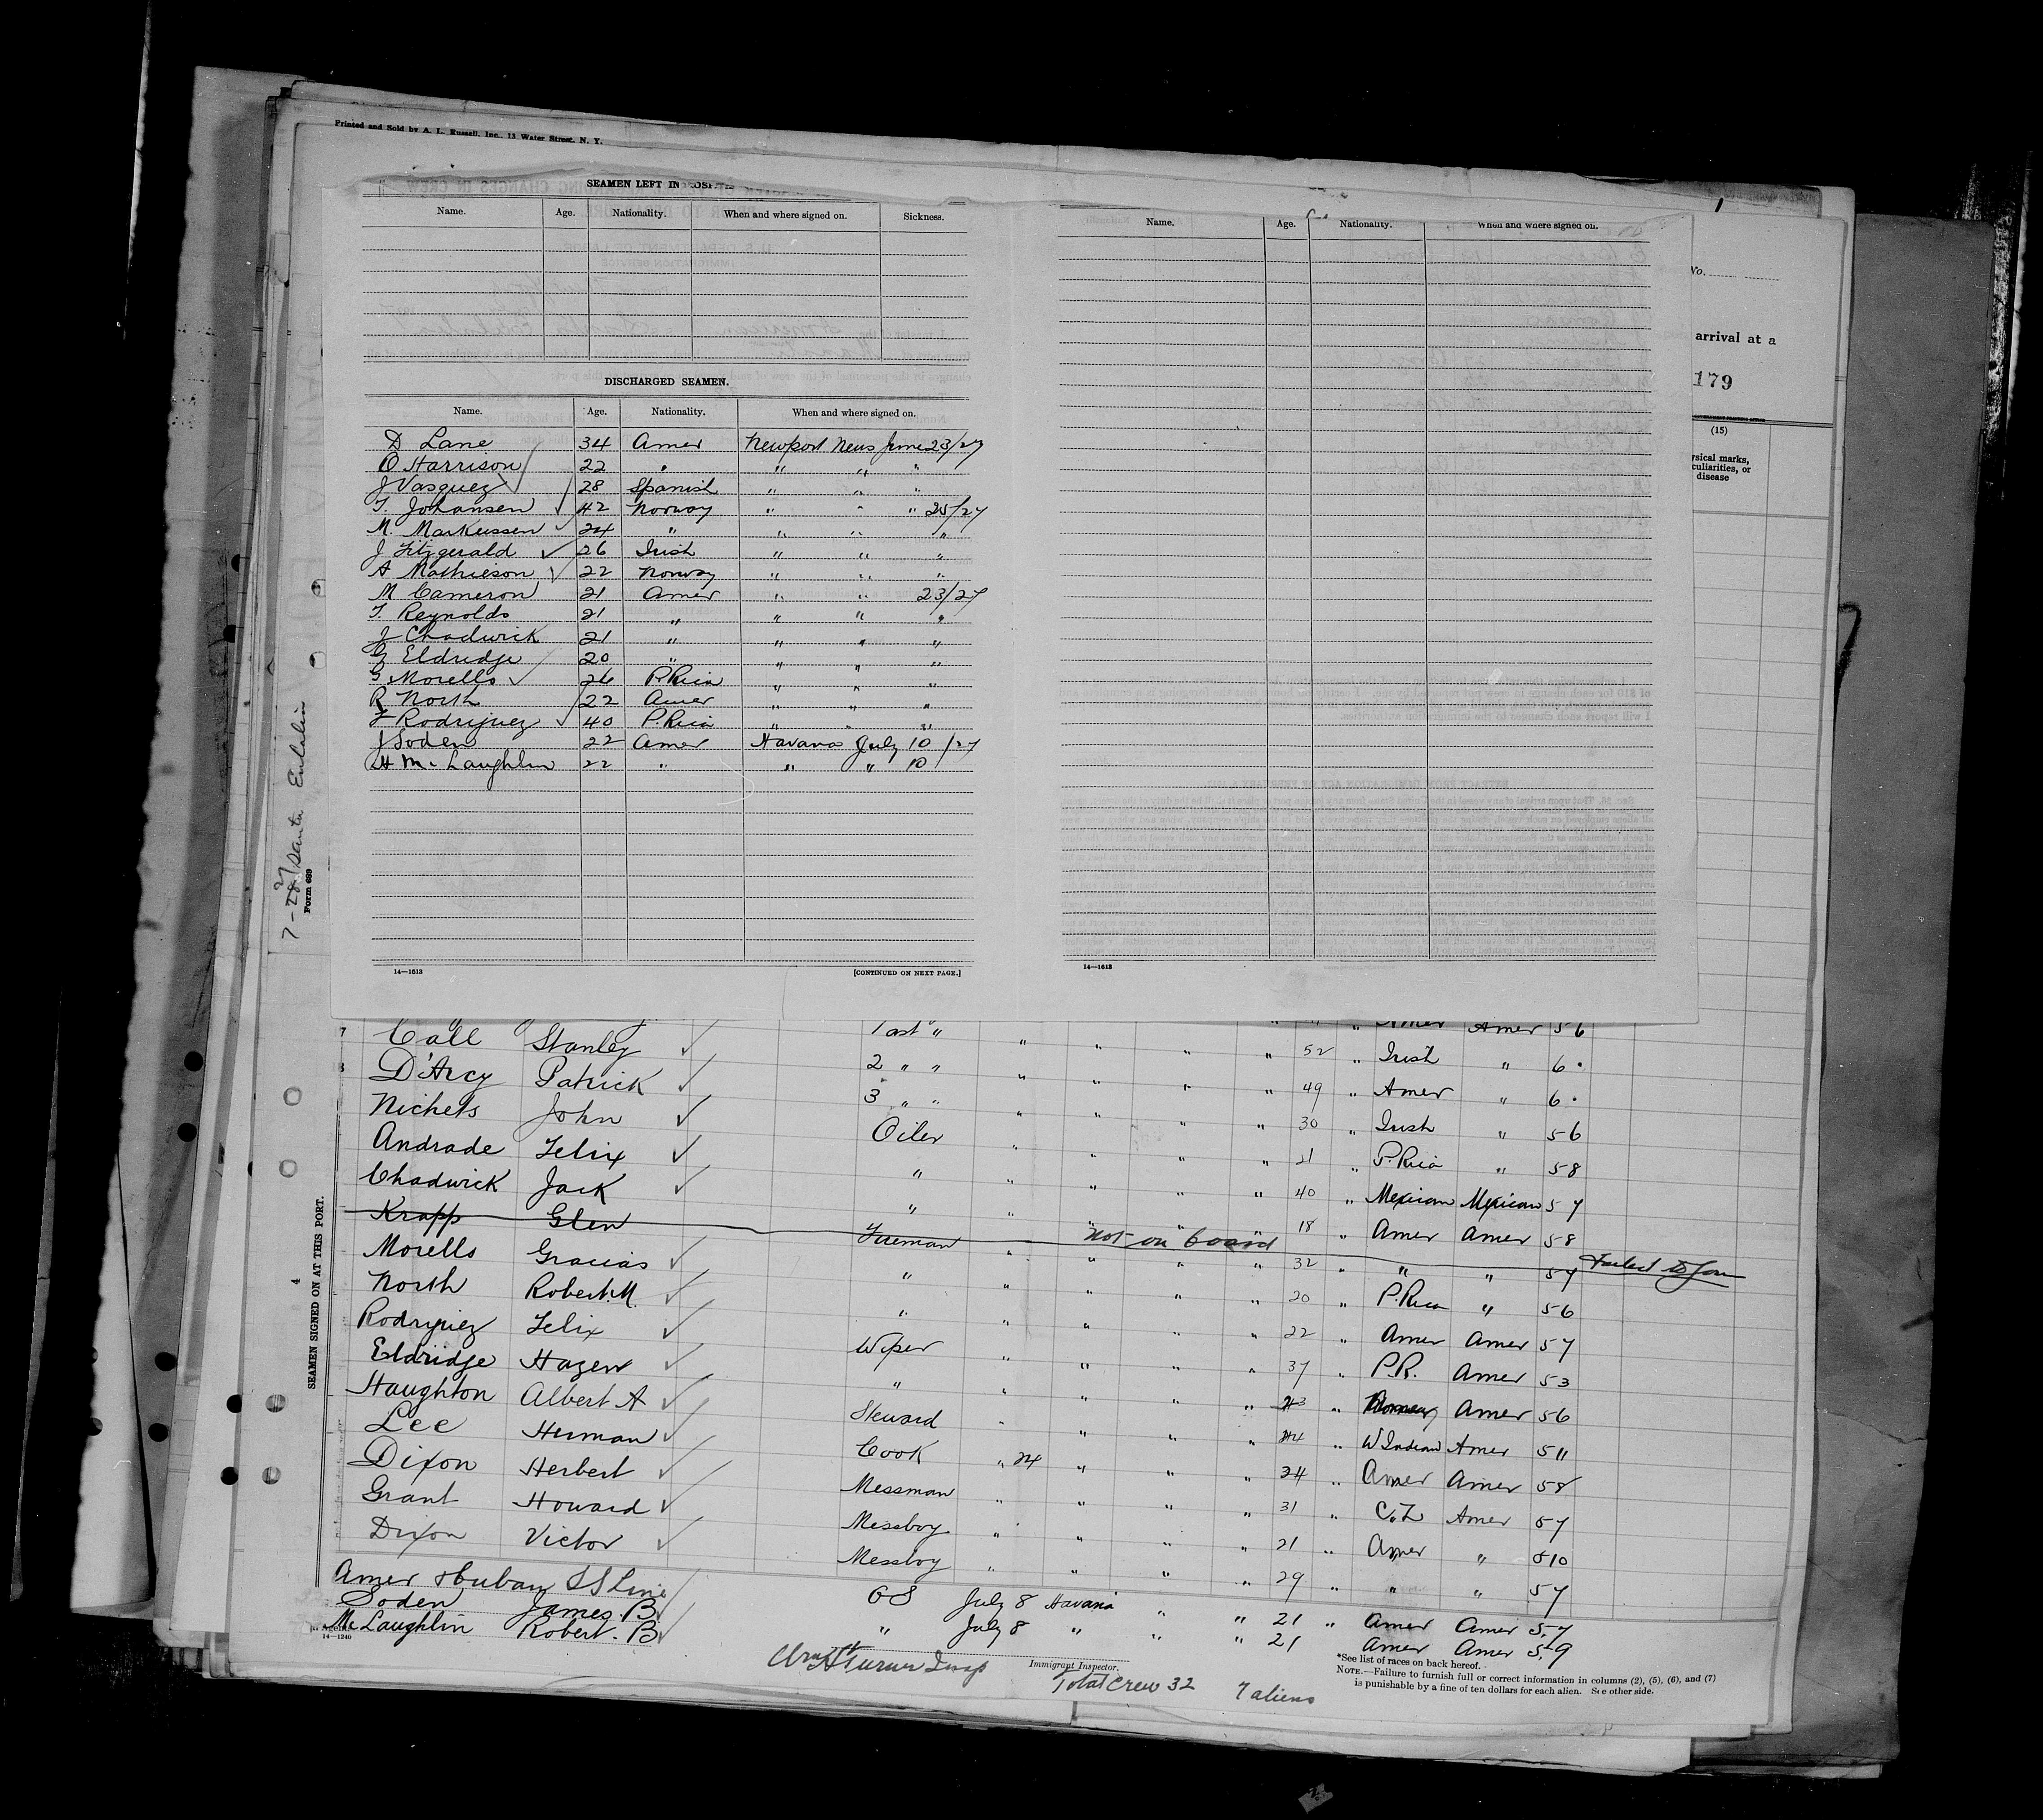 Printed and Sold by A. L. Russell, Inc., 13 Water Street, N. Y.
SEAMEN LEFT IN
Name. Age. Nationality. When and where signed on. Sickness.
Name. Age. Nationality. When and where signed on.
No.
arrival at a
179
(15)
DISCHARGED SEAMEN.
Name. Age. Nationality. When and where signed on.
D Lane 34 Amer Newport News June 23/27
O Harrison 22 " " " "
J Vasquez 28 Spanish " " "
T. Johansen 42 Norway " " " 25/27
M. Markussen 24 " " " "
J Fitzgerald 26 Irish " " "
A Mathieson 22 Norway " " "
M Cameron 21 Amer " " 23/27
T Reynolds 21 " " " "
J Chadwick 21 " " " "
G Eldredge 20 " " " "
G Morells 26 P.Rico " " "
R North 22 Amer " " "
F Rodriguez 40 P.Rico " " "
J Soden 22 Amer Havana July 10/27
H McLaughlin 22 " " " 10
14—1613 [CONTINUED ON NEXT PAGE.]
14—1613
7-28 Santa Eulalia
Form 689
SEAMEN SIGNED ON AT THIS PORT.
4
7 Call Stanley 1 ast " " " " " " Amer Amer 5 6
D'Arcy Patrick 2 " " " " " " 52 " Irish " 6
Nichels John 3 " " " " " " 49 " Amer " 6
Andrade Felix Oiler " " " " 30 " Irish " 5 6
Chadwick Jack " " " " " 21 " P.Rico " 5 8
Krapp Glen " " " " " 40 " Mexican Mexican 5 7
Morells Gracias Fireman " not on board 18 " Amer Amer 5 8
North Robert.M. " " " " " 32 " " " 5 7 Failed to Join
Rodriguez Felix " " " " " 20 " P.Rico " 5 6
Eldridge Hazen Wiper " " " " 22 " Amer Amer 5 7
Haughton Albert A " " " " " 37 " P.R. Amer 5 3
Lee Herman Steward " " " " " Amer 5 6
Dixon Herbert Cook " 24 " " " 44 " W Indian Amer 5 11
Grant Howard Messman " " " " 24 " Amer Amer 5 8
Dixon Victor Messboy " " " " 31 " C.Z Amer 5 7
Messboy " " " " 21 " Amer " 5 10
29 " " " 5 7
Amer & Cuban S S Line
Soden James. B OS July 8 Havana " " 21 " Amer Amer 5.7
McLaughlin Robert. B " July 8 " " " 21 Amer Amer 5.9
14—1240
Turner Insp
Immigrant Inspector.
Total Crew 32 7 aliens
*See list of races on back hereof.
NOTE.—Failure to furnish full or correct information in columns (2), (5), (6), and (7)
is punishable by a fine of ten dollars for each alien. See other side.